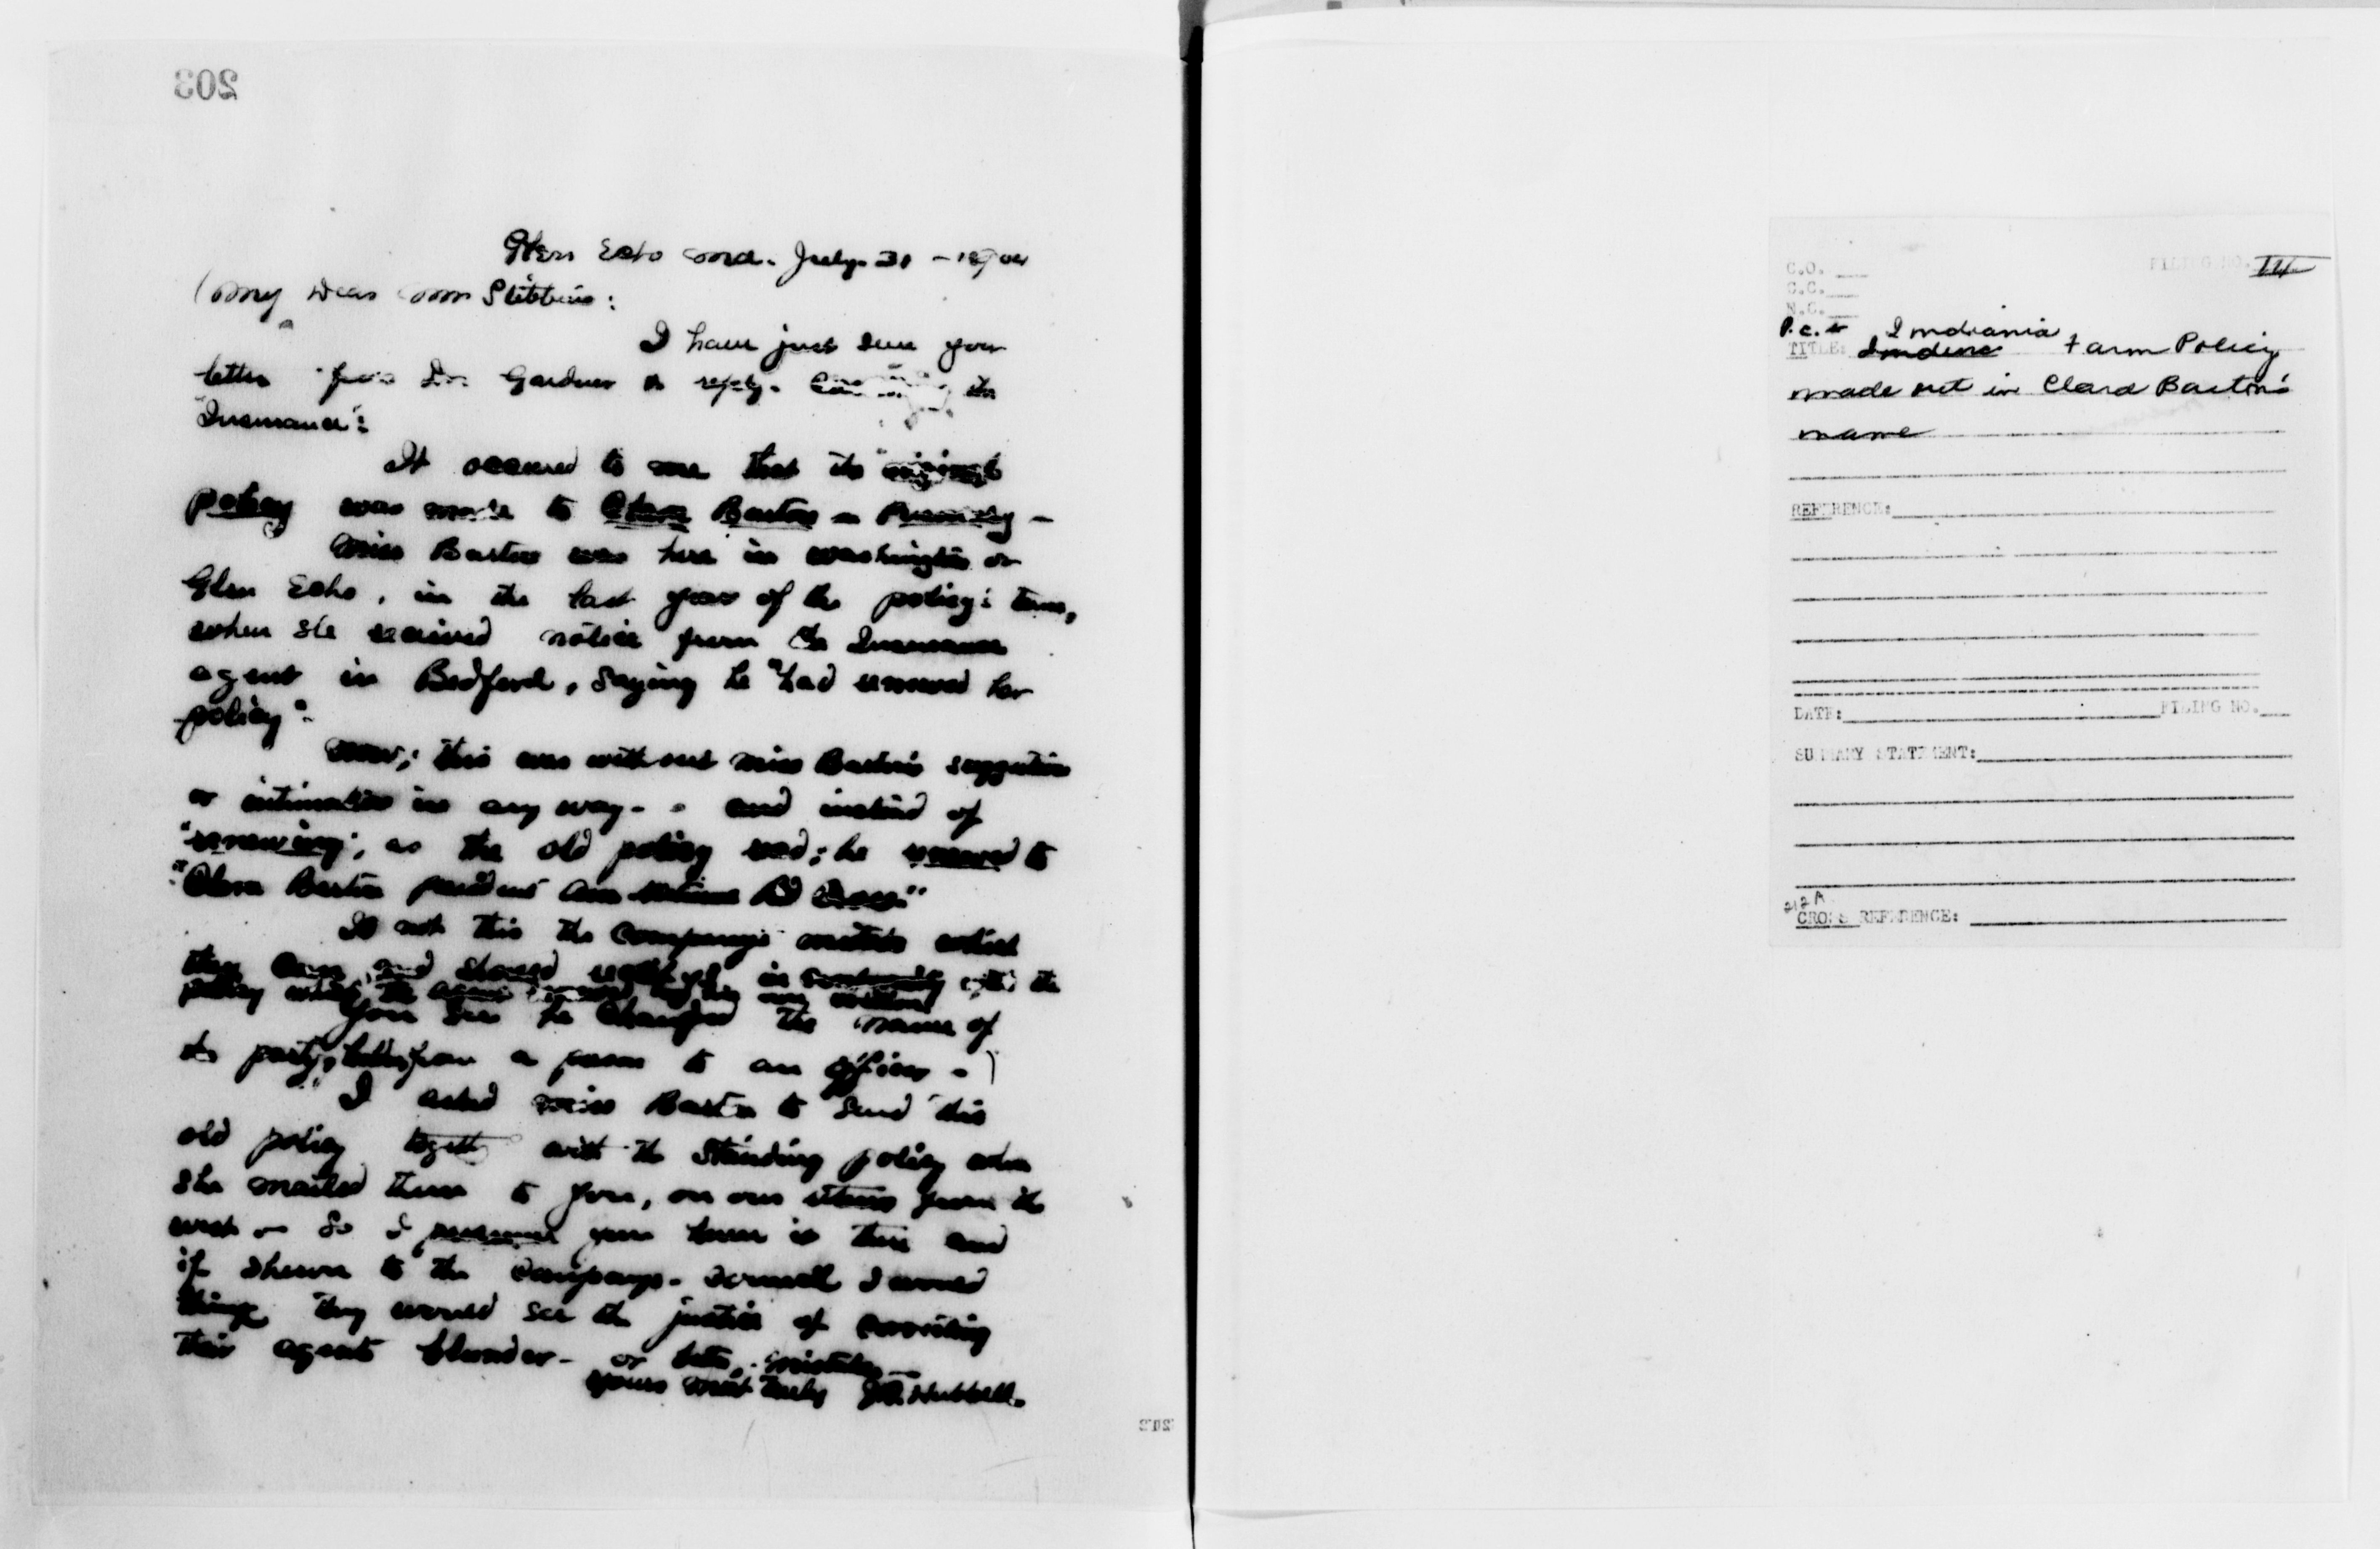 203
Glen Echo Md. July 31 - 190
My Dear Mr Stebbins:
I have just seen your
letter from Dr. Gardner in reply. the
"Insurance":
It occured to me that the "original
policy was made to Clara Barton -
Miss Barton was here in Washington or
Glen Echo, in the last year of the policy's term,
when she received notice from the Insurance
agent in Bedford, saying he "had renewed her
policy".
Now; this was without Miss Barton's suggestion
or intimation in any way - and instead of
"renewing", as the old policy read; he renewed to
"Clara Barton president Am National Rd Cross."
Is not this the Company's mistake which
they can and should rectify, in with the
policy which the agent
You see he changed the name of
the party, from a person to an officer -)
I asked Miss Barton to send this
old policy together with the Standing policy when
she mailed them to you, on our return from the
west - So I presume you have it there and
if shown to the Company. I would
think they would see the justice of correcting
their agents blunder - or mistake -
Yours most truly J.B. Hubbell.
202
C.O.
FILING NO. 14
C.C.
N.C.
P.C. Indiania
TITLE: Farm Policy
made out in Clara Barton's
name
REFERENCE:
DATE: FILING NO.
SUMMARY STATEMENT:
212A
CROSS REFERENCE: